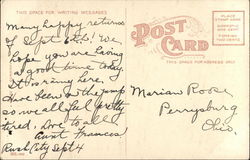 THIS SPACE FOR WRITING MESSAGES
Many happy returns
of Sept 6th! We
hope you are having
a good time today.
It is rainy here.
Have been on the jump
so we all feel pretty
tired. Love to all
Aunt Frances
Rush City Sept 4
POST CARD
THIS SPACE FOR ADDRESS ONLY
PLACE
STAMP HERE
DOMESTIC
ONE CENT
FOREIGN
TWO CENTS
Marian Roose
Perrysburg
Ohio.